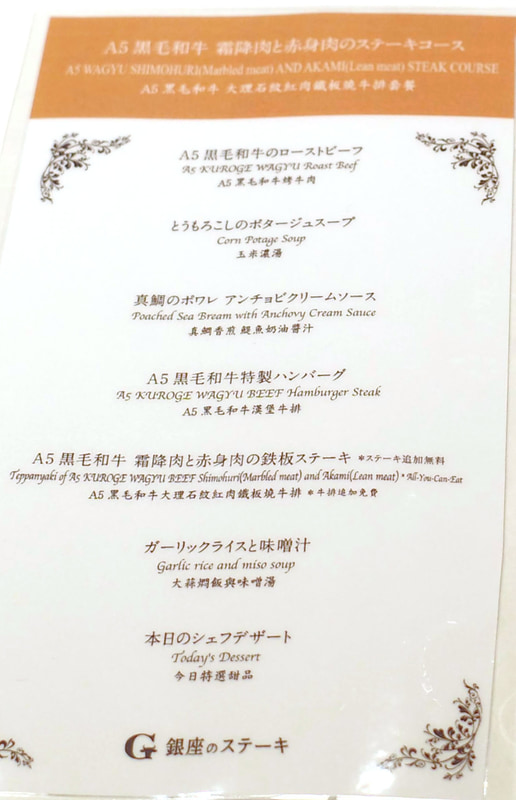 A5黒毛和牛 霜降肉と赤身肉のステーキコース
A5 WAGYU SHIMOHURI(Marbled meat) AND AKAMI(Lean meat) STEAK COURSE
A5黒毛和牛 大理石紋紅肉鐵板燒牛排套餐
A5黒毛和牛のローストビーフ
A5 KUROGE WAGYU Roast Beef
A5黑毛和牛烤牛肉
とうもろこしのポタージュスープ
Corn Potage Soup
玉米濃湯
真鯛のポワレ アンチョビクリームソース
Poached Sea Bream with Anchovy Cream Sauce
真鯛香煎 鯷魚奶油醬汁
A5黒毛和牛特製ハンバーグ
A5 KUROGE WAGYU BEEF Hamburger Steak
A5黑毛和牛漢堡牛排
A5黒毛和牛 霜降肉と赤身肉の鉄板ステーキ ※ステーキ追加無料
Teppanyaki of A5 KUROGE WAGYU BEEF Shimohuri(Marbled meat) and Akami(Lean meat) * All-You-Can-Eat
A5黑毛和牛大理石紋紅肉鐵板燒牛排 ※牛排追加免費
ガーリックライスと味噌汁
Garlic rice and miso soup
大蒜燜飯與味噌湯
本日のシェフデザート
Today's Dessert
今日特選甜品
G 銀座のステーキ